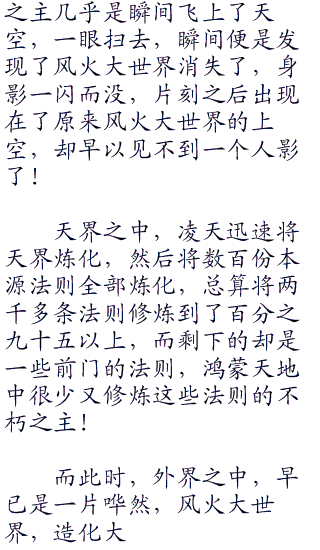 之主几乎是瞬间飞上了天
空，一眼扫去，瞬间便是发
现了风火大世界消失了，身
影一闪而没，片刻之后出现
在了原来风火大世界的上
空，却早以见不到一个人影
了！
天界之中，凌天迅速将
天界炼化，然后将数百份本
源法则全部炼化，总算将两
千多条法则修炼到了百分之
九十五以上，而剩下的却是
一些前门的法则，鸿蒙天地
中很少又修炼这些法则的不
朽之主！
而此时，外界之中，早
已是一片哗然，风火大世
界，造化大